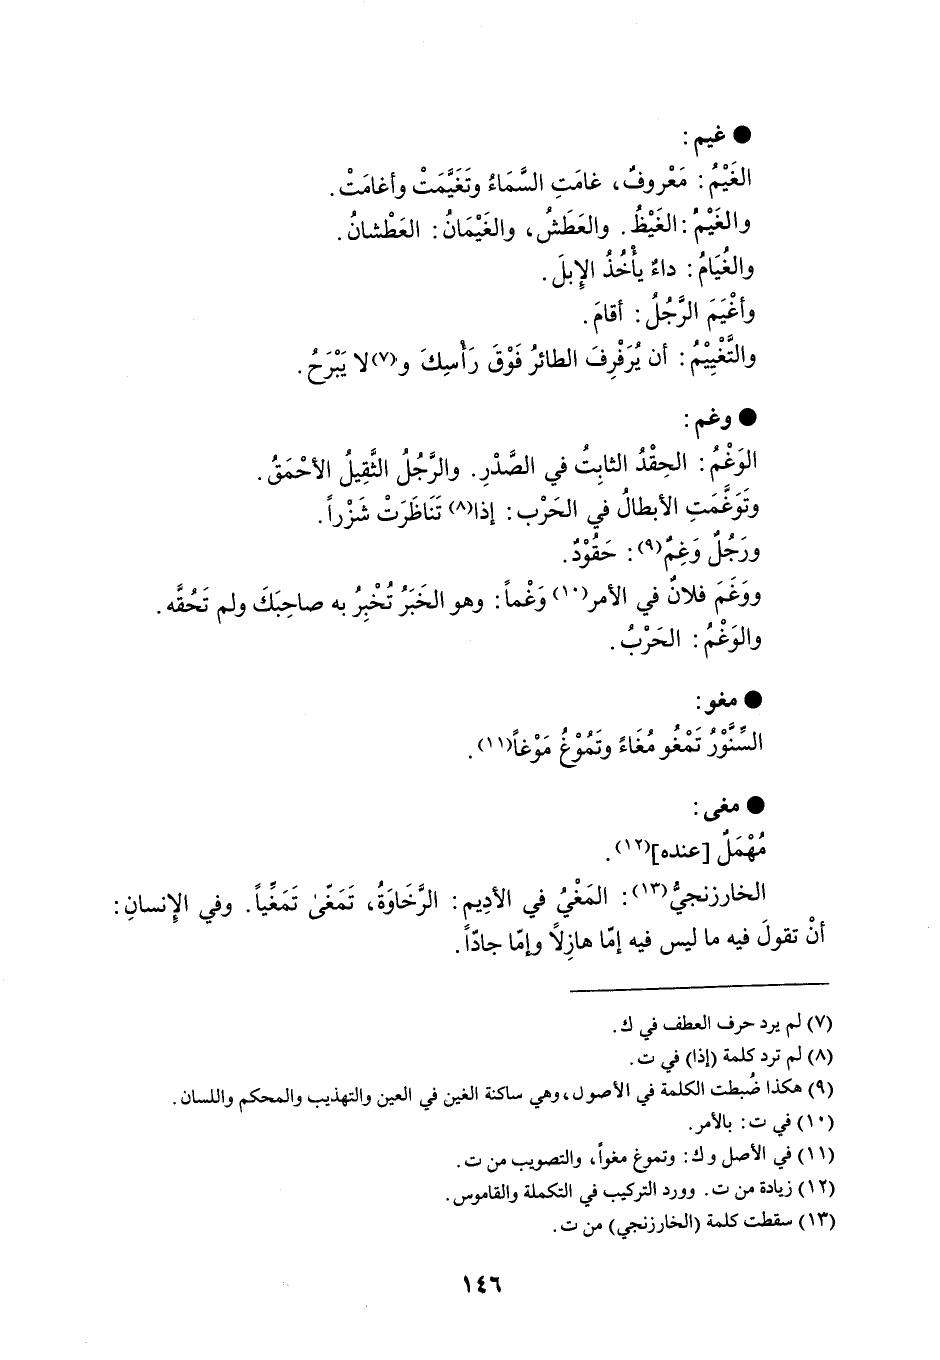 ● غيم :
الغَيْمُ : مَعْروفٌ ، غامَتِ السَّمَاءُ وتَغَيَّمَتْ وأغامَتْ .
والغَيْمُ : الغَيْظُ . والعَطَشُ ، والغَيْمَانُ : العَطْشانُ .
والغُيَامُ : داءٌ يأْخُذُ الإِبلَ .
وأغْيَمَ الرَّجُلُ : أقامَ .
والتَّغْيِيْمُ : أن يُرَفْرِفَ الطائرُ فَوْقَ رَأْسِكَ و(٧) لا يَبْرَحُ .
● وغم :
الوَغْمُ : الحِقْدُ الثابِتُ في الصَّدْرِ . والرَّجُلُ الثَّقِيلُ الأحْمَقُ .
وتَوَغَّمَتِ الأبطالُ في الحَرْب : إذا(٨) تَنَاظَرَتْ شَزْراً .
ورَجُلٌ وَغِمٌ(٩) : حَقُوْدٌ .
ووَغَمَ فلانٌ في الأمر(١٠) وَغْماً : وهو الخَبَرُ تُخْبِرُ به صاحِبَكَ ولم تَحُقَّه .
والوَغْمُ : الحَرْبُ .
● مغو :
السِّنَّوْرُ تَمْغُو مُغَاءً وتَمُوْغُ مَوْغاً(١١) .
● مغى :
مُهْمَلٌ [عنده](١٢) .
الخارزنجيُّ(١٣) : المَغْيُ في الأدِيم : الرَّخَاوَةُ ، تَمَغّىٰ تَمَغِّياً . وفي الإِنسانِ :
أنْ تقولَ فيه ما ليس فيه إمّا هازِلاً وإمّا جادّاً .
(٧) لم يرد حرف العطف في ك .
(٨) لم ترد كلمة (إذا) في ت .
(٩) هكذا ضُبطت الكلمة في الأصول ، وهي ساكنة الغين في العين والتهذيب والمحكم واللسان .
(١٠) في ت : بالأمر .
(١١) في الأصل و ك : وتموغ مغواً ، والتصويب من ت .
(١٢) زيادة من ت . وورد التركيب في التكملة والقاموس .
(١٣) سقطت كلمة (الخارزنجي) من ت .
١٤٦